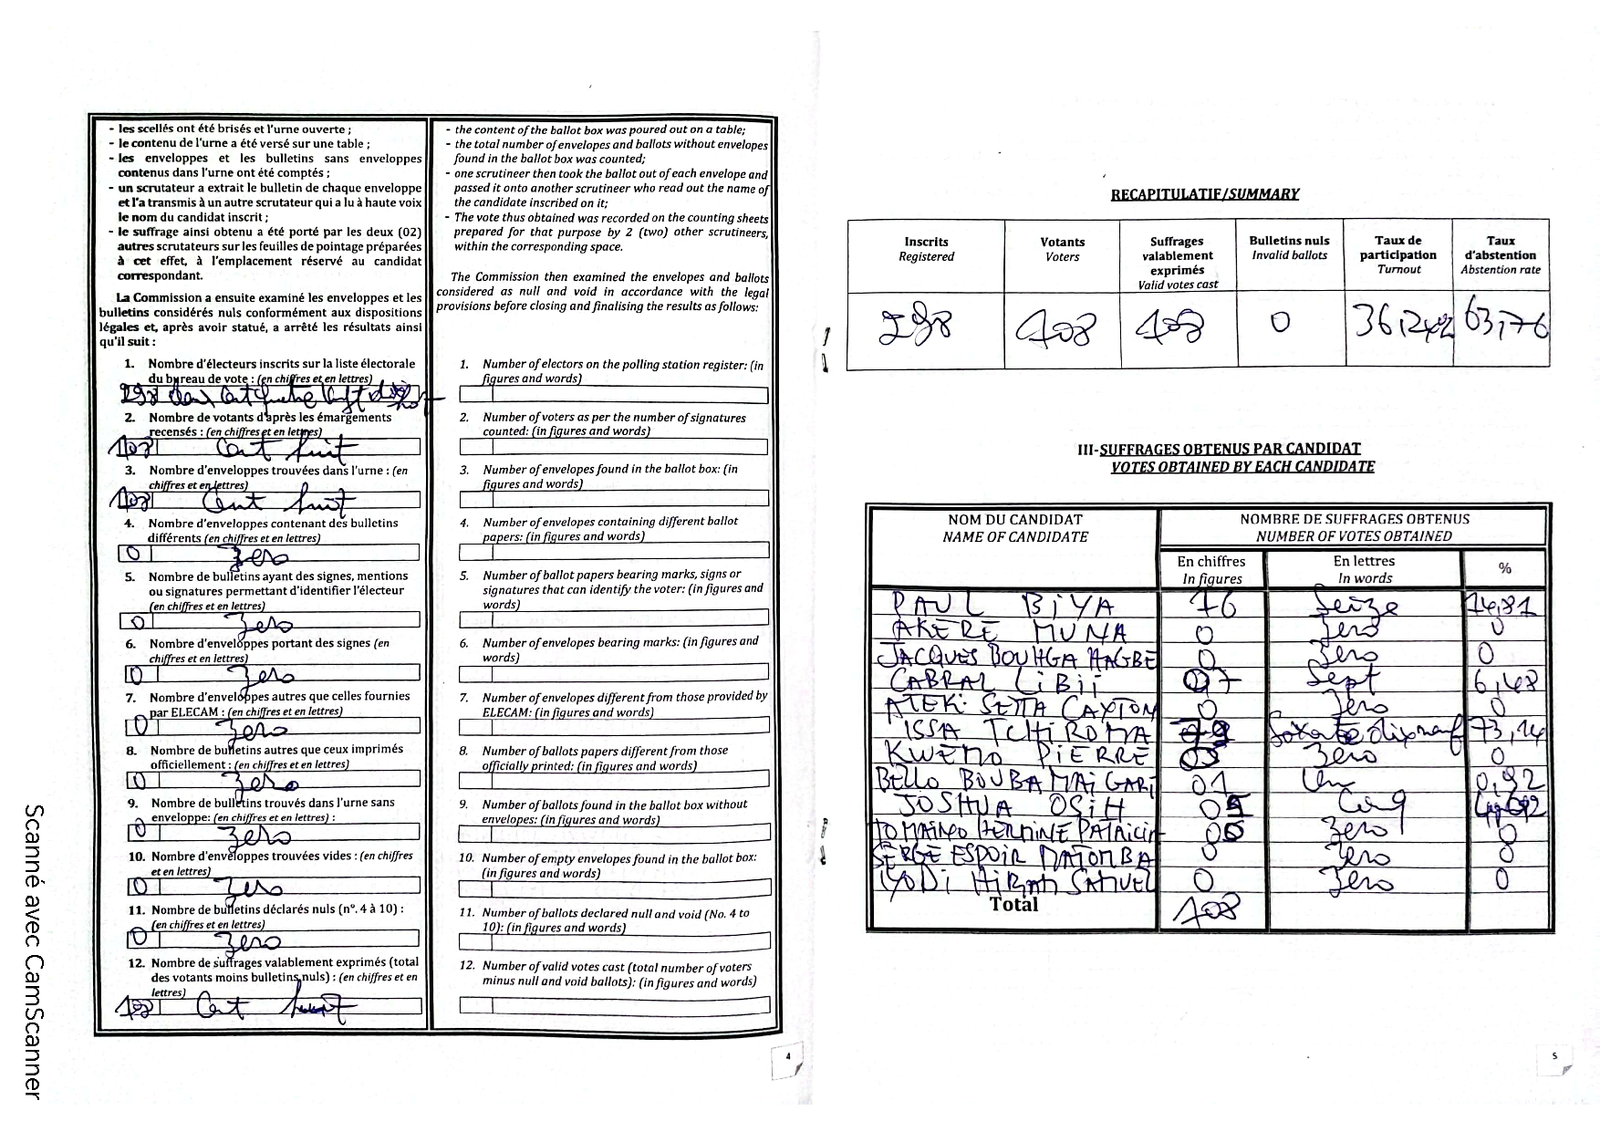 - les scellés ont été brisés et l'urne ouverte ;
- le contenu de l'urne a été versé sur une table ;
- les enveloppes et les bulletins sans enveloppes
contenus dans l'urne ont été comptés ;
- un scrutateur a extrait le bulletin de chaque enveloppe
et l'a transmis à un autre scrutateur qui a lu à haute voix
le nom du candidat inscrit ;
- le suffrage ainsi obtenu a été porté par les deux (02)
autres scrutateurs sur les feuilles de pointage préparées
à cet effet, à l'emplacement réservé au candidat
correspondant.
La Commission a ensuite examiné les enveloppes et les
bulletins considérés nuls conformément aux dispositions
légales et, après avoir statué, a arrêté les résultats ainsi
qu'il suit :
1. Nombre d'électeurs inscrits sur la liste électorale
du bureau de vote : (en chiffres et en lettres)
298 deux cent quatre vingt dix
2. Nombre de votants d'après les émargements
recensés : (en chiffres et en lettres)
108 Cent huit
3. Nombre d'enveloppes trouvées dans l'urne : (en
chiffres et en lettres)
108 Cent huit
4. Nombre d'enveloppes contenant des bulletins
différents (en chiffres et en lettres)
0 Zero
5. Nombre de bulletins ayant des signes, mentions
ou signatures permettant d'identifier l'électeur
(en chiffres et en lettres)
0 Zero
6. Nombre d'enveloppes portant des signes (en
chiffres et en lettres)
0 Zero
7. Nombre d'enveloppes autres que celles fournies
par ELECAM : (en chiffres et en lettres)
0 Zero
8. Nombre de bulletins autres que ceux imprimés
officiellement : (en chiffres et en lettres)
0 Zero
9. Nombre de bulletins trouvés dans l'urne sans
enveloppe: (en chiffres et en lettres) :
0 Zero
10. Nombre d'enveloppes trouvées vides : (en chiffres
et en lettres)
0 Zero
11. Nombre de bulletins déclarés nuls (n°. 4 à 10) :
(en chiffres et en lettres)
0 Zero
12. Nombre de suffrages valablement exprimés (total
des votants moins bulletins nuls) : (en chiffres et en
lettres)
108 Cent huit
- the content of the ballot box was poured out on a table;
- the total number of envelopes and ballots without envelopes
found in the ballot box was counted;
- one scrutineer then took the ballot out of each envelope and
passed it onto another scrutineer who read out the name of
the candidate inscribed on it;
- The vote thus obtained was recorded on the counting sheets
prepared for that purpose by 2 (two) other scrutineers,
within the corresponding space.
The Commission then examined the envelopes and ballots
considered as null and void in accordance with the legal
provisions before closing and finalising the results as follows:
1. Number of electors on the polling station register: (in
figures and words)
2. Number of voters as per the number of signatures
counted: (in figures and words)
3. Number of envelopes found in the ballot box: (in
figures and words)
4. Number of envelopes containing different ballot
papers: (in figures and words)
5. Number of ballot papers bearing marks, signs or
signatures that can identify the voter: (in figures and
words)
6. Number of envelopes bearing marks: (in figures and
words)
7. Number of envelopes different from those provided by
ELECAM: (in figures and words)
8. Number of ballots papers different from those
officially printed: (in figures and words)
9. Number of ballots found in the ballot box without
envelopes: (in figures and words)
10. Number of empty envelopes found in the ballot box:
(in figures and words)
11. Number of ballots declared null and void (No. 4 to
10): (in figures and words)
12. Number of valid votes cast (total number of voters
minus null and void ballots): (in figures and words)
4
Scanné avec CamScanner
RECAPITULATIF/SUMMARY
Inscrits Votants Suffrages valablement exprimés Bulletins nuls Taux de participation Taux d'abstention
Registered Voters Valid votes cast Invalid ballots Turnout Abstention rate
298 108 108 0 36,242 63,76
III-SUFFRAGES OBTENUS PAR CANDIDAT
VOTES OBTAINED BY EACH CANDIDATE
NOM DU CANDIDAT NOMBRE DE SUFFRAGES OBTENUS
NAME OF CANDIDATE NUMBER OF VOTES OBTAINED
En chiffres En lettres %
In figures In words
PAUL BIYA 16 Seize 14,81
AKERE MUNA 0 Zero 0
JACQUES BOUHGA HAGBE 0 Zero 0
CABRAL LiBii 07 Sept 6,48
ATEKI SETTA CAXTON 0 Zero 0
ISSA TCHIROMA 79 Soixante dix neuf 73,14
KWEMO PIERRE 0 Zero 0
BELLO BOUBA MAIGARI 01 Un 0,92
JOSHUA OSIH 05 Cinq
TOMAINO HERMINE PATRICIA 0 Zero 0
SERGE ESPOIR MATOMBA 0 Zero 0
IYODI HIRAM SAMUEL 0 Zero 0
Total 108
5